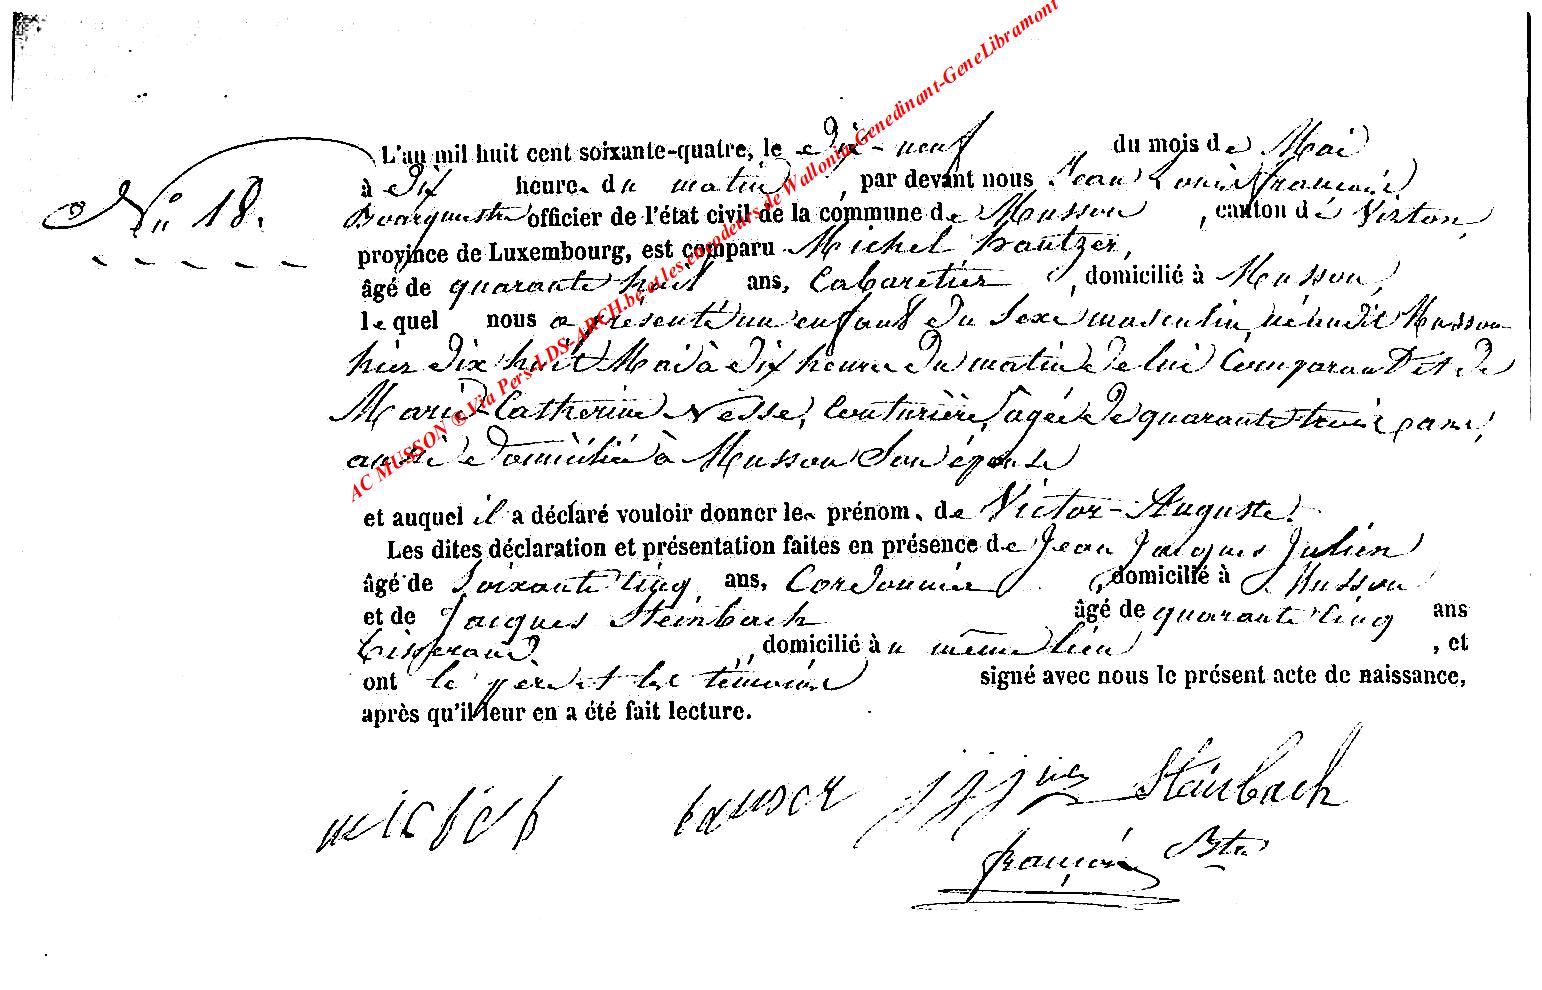 L'an mil huit cent soixante-quatre, le Dix-neuf du mois de Mai
N.° 18. à Dix heure du matin, par devant nous Jean Louis françois
Bourgmestre officier de l'état civil de la commune de Musson, canton de Virton,
province de Luxembourg, est comparu Michel hautzer,
âgé de quarante huit ans, Cabaretier, domicilié à Musson,
lequel nous a présenté un enfant du sexe masculin né audit Musson
hier dix huit Mai à dix heure du matin de lui Comparant et de
Marie-Catherine Nesse, Couturière, agée de quarante trois ans,
aussi domiciliée à Musson Son épouse
et auquel il a déclaré vouloir donner les prénom. de Victor-Auguste.
Les dites déclaration et présentation faites en présence de Jean Jacques Julien
âgé de Soixante cinq ans, Cordonnier, domicilié à Musson
et de Jacques Steinbach âgé de quarante cinq ans
tisserand, domicilié à u même lieu, et
ont le pere et les témoins signé avec nous le présent acte de naissance,
après qu'il leur en a été fait lecture.
michel hauser Steinbach
françois Btre
AC MUSSON ® Via Pers-LDS-ARCH.be et les encodeurs de Wallonia-Genedinant-GeneLibramont